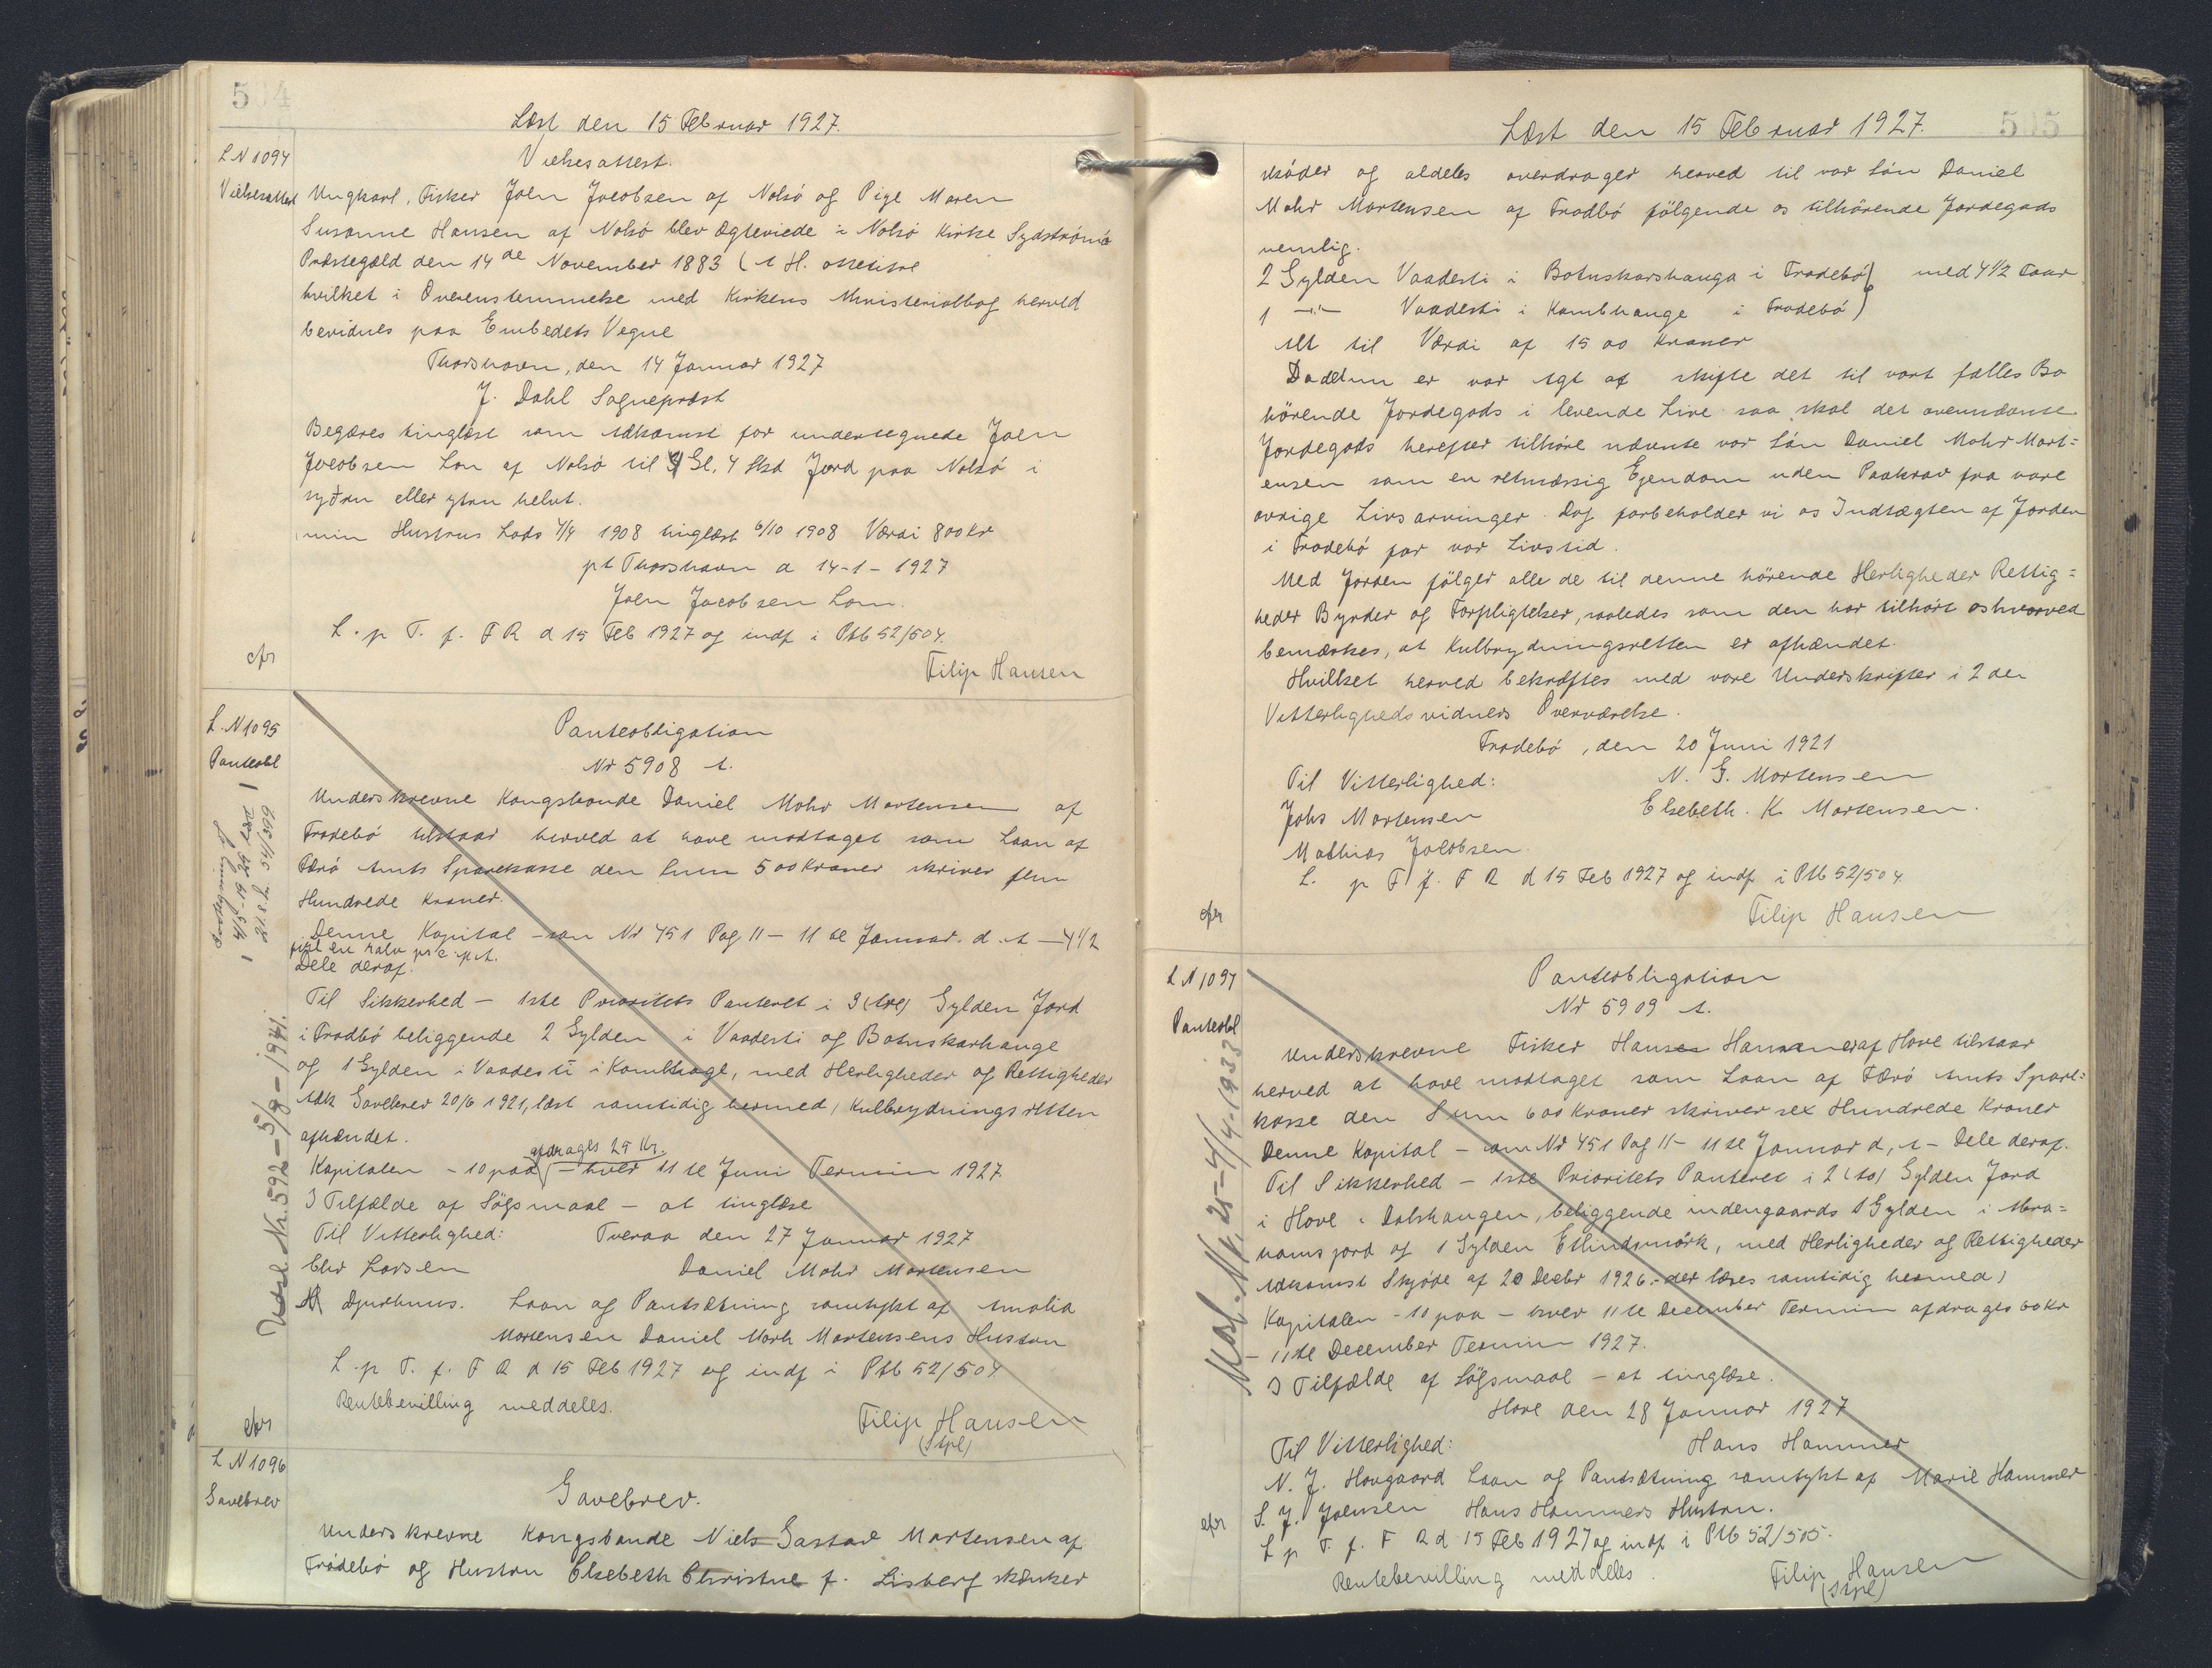 504
Læst den 15 Februar 1927.
L N 1094
Vielsesattest
Vielsesattest.
Ungkarl, Fisker Joen Jacobsen af Nolsö og Pige Maren
Susanne Hansen af Nolsö blev ægteviede i Nolsö Kirke Sydströmö
Præstegæld den 14de November 1883 (1 H. ottetitre
hvilket i Overensstemmelse med Kirkens Ministerialbog herved
bevidnes paa Embedets Vegne
Thorshavn, den 14 Januar 1927
J. Dahl Sognepræst
Begæres tinglæst som Adkomst for undertegnede Joen
Jacobsen Lon af Nolsö til Gl. 4 Skd Jord paa Nolsö i
syðru eller ytru helvt.
min Hustrus Lods 7/4 1908 tinglæst 6/10 1908 Værdi 800 Kr
pt Thorshavn d 14-1-1927
Joen Jacobsen Lon.
L. p T. f. F R d 15 Feb 1927 og indf i Ptb 52/504.
efr
Filip Hansen
L. N 1095
Panteobl
Panteobligation
Nr 5908 A.
Underskrevne Kongsbonde Daniel Mohr Mortensen af
Trodebö tilstaar herved at have modtaget som Laan af
Færö Amts Sparekasse den Sum 500 Kroner skriver fem
Hundrede Kroner.
Denne Kapital - som Nr 451 Pag 11 - 11 te Januar. d. A - 4 1/2
fire en halv pr c. p. A.
Dele deraf.
Til Sikkerhed - 1ste Prioritets Panteret i 3 (tre) Gylden Jord
i Trodbö beliggende 2 Gylden i Vaadesti og Botnskarhange
og 1 Gylden i Vaadesti i Kambhage, med Herligheder og Rettigheder
Adk Gavebrev 20/6 1921, læst samtidig hermed, Kulbrydningsretten
afhændet.
afdrages 25 Kr.
Kapitalen - 10 paa - hver 11 te Juni Termin 1927.
I Tilfælde af Sögsmaal - at tinglæse
Til Vitterlighed: Tveraa den 27 Januar 1927
Chr Larsen Daniel Mohr Mortensen
Djurhuus. Laan og Pantsætning samtykt af Amalia
Mortensen Daniel Morh Mortensens Hustru
L. p T. f. F R d 15 Feb 1927 og indf i Ptb 52/504.
Rentebevilling meddeles.
efr
Filip Hansen
(Stpl)
Udsl. Nr. 592 - 5/9 - 1941.
L N 1096
Gavebrev
Gavebrev.
Underskrevne Kongsbonde Niels Gastav Mortensen af
Trödebö og Hustru Elsebeth Christine f. Lisberg skænker
505
Læst den 15 Februar 1927.
skøder og aldeles overdrager herved til vor Sön Daniel
Mohr Mortensen af Trodbö fölgende os tilhörende Jordegods
nemlig.
2 Gylden Vaadesti i Botnskarshauga i Trodebö) med 4 1/2 Faar
1 -"- Vaadesti i Kambhange i Trodebö)
Alt til Værdi af 1500 Kroner
Da det nu er vor Agt at skifte det til vort fælles Bo
hörende Jordegods i levende Live saa skal det ovennævnte
Jordegods herefter tilhöre nævnte vor Sön Daniel Mohr Mort=
ensen som en retmæssig Ejendom uden Paakrav fra vore
övrige Livsarvinger. Dog forbeholder vi os Indtægten af Jorden
i Trodebö for vor Livstid.
Med Jorden fölger alle de til denne hörende Herligheder Rettig=
heder Byrder og Forpligtelser, saaledes som den har tilhört os hvorved
bemærkes, at Kulbrydningsretten er afhændet.
Hvilket herved bekræftes med vore Underskrifter i 2 de
Vitterlighedsvidners Overværelse.
Trodebö, den 20 Juni 1921
Til Vitterlighed: N. G. Mortensen
Johs Mortensen Elsebeth. K. Mortensen.
Mathias Jacobsen.
L. p T f. F R d 15 Feb 1927 og indf i Ptb 52/504.
efr
Filip Hansen
L N 1097
Panteobl
Panteobligation
Nr 5909 A.
Underskrevne Fisker Hans Hammer af Hove tilstaar
herved at have modtaget som Laan af Færö Amts Spare=
kasse den Sum 600 Kroner skriver sex Hundrede Kroner
Denne Kapital - som Nr 451 Pag 11 - 11 te Januar d, A - Dele deraf.
Til Sikkerhed - 1ste Prioritets Panteret i 2 (to) Gylden Jord
i Hove i Dalshaugen, beliggende indengaards 1 Gylden i Abra=
hamsjord og 1 Gylden Ellindsmörk, med Herligheder og Rettigheder
Adkomst Skjøde af 20 Decbr 1926 - der læses samtidig hermed)
Kapitalen - 10 paa - hver 11 te December Termin afdrages 60 Kr
- 11 te December Termin 1927.
I Tilfælde af Sögsmaal - at tinglæse.
Hove den 28 Januar 1927
Til Vitterlighed: Hans Hammer
N. J. Hovgaard Laan og Pantsætning samtykt af Marie Hammer
S. J. Joensen Hans Hammers Hustru.
L p T. f. F R d 15 Feb 1927 og indf i Ptb 52/505.
efr
Rentebevilling meddeles.
Filip Hansen
(Stpl)
Udsl. Nr. 25 - 4/4 - 1933